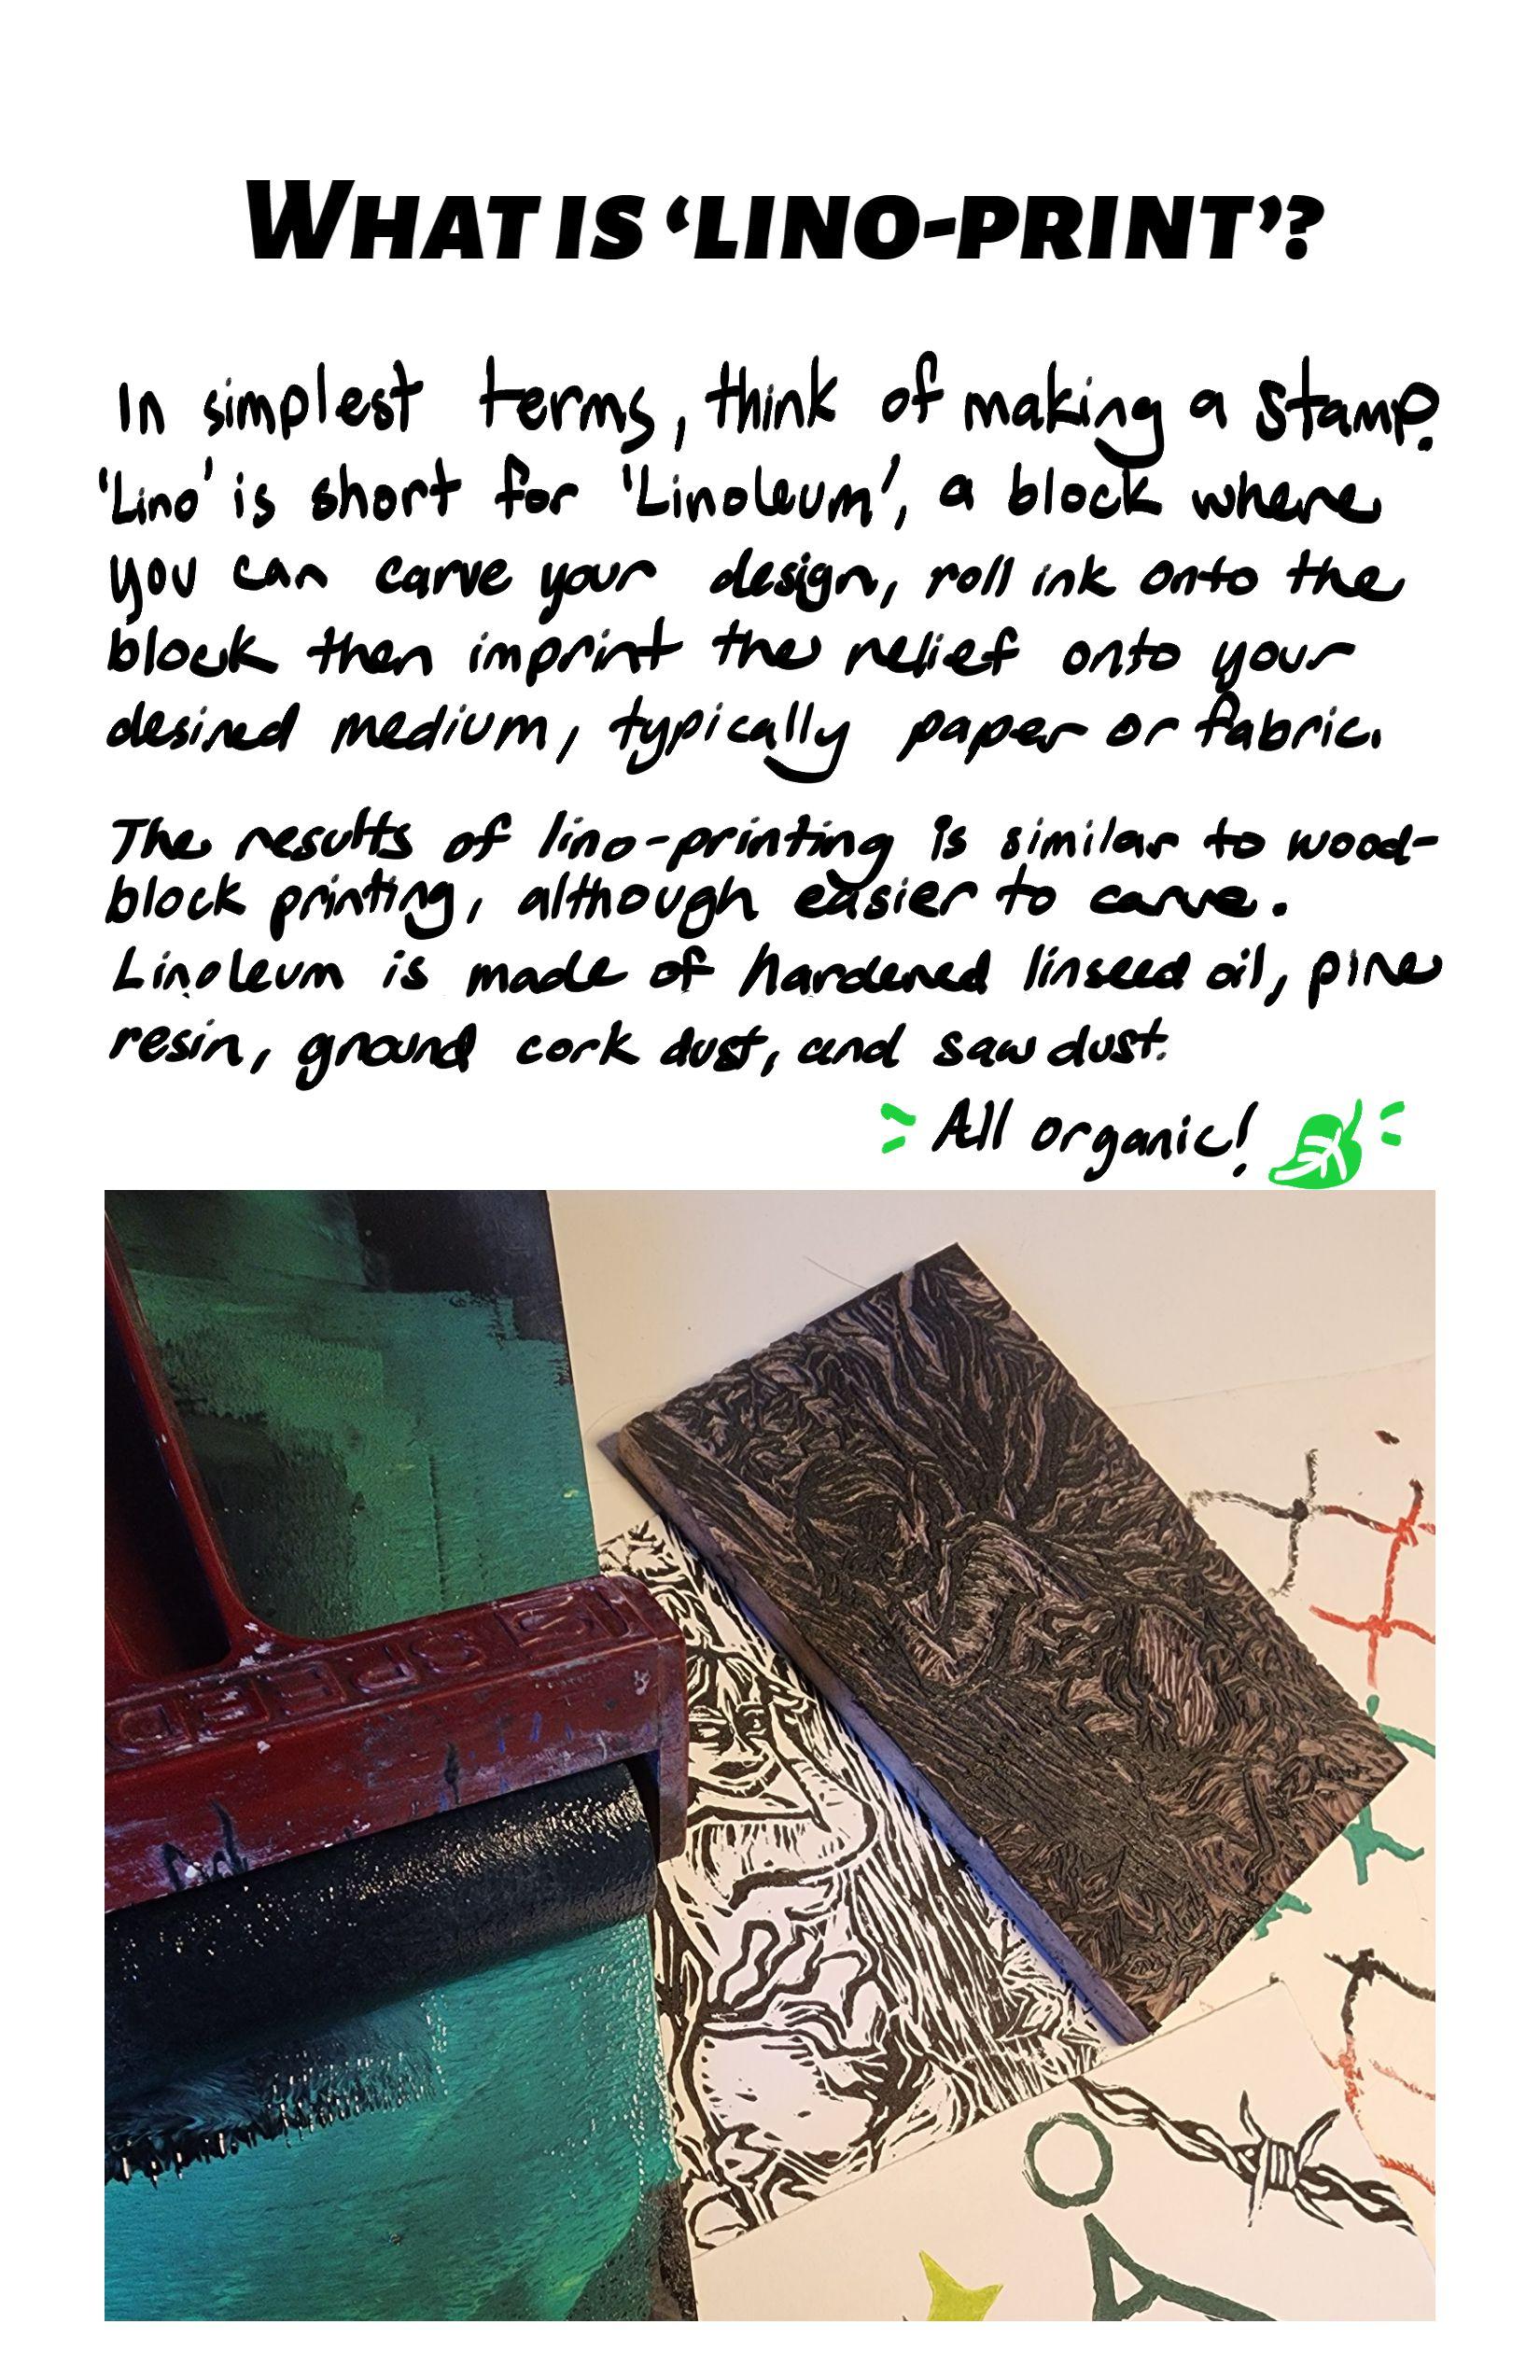 WHAT IS ‘LINO-PRINT’?
In simplest terms, think of making a stamp.
'Lino' is short for 'Linoleum', a block where
you can carve your design, roll ink onto the
block then imprint the relief onto your
desired medium, typically paper or fabric.
The results of lino-printing is similar to wood-
block printing, although easier to carve.
Linoleum is made of hardened linseed oil, pine
resin, ground cork dust, and saw dust.
All organic!
SPEED